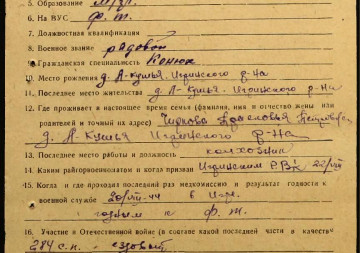 5. Образование
6. На ВУС ф. т.
7. Должностная квалификация
8. Военное звание рядовой
9. Гражданская специальность Конюх
10. Место рождения д. А-Кушья Игринского р-на
11. Последнее место жительства д. А-Кушья Игринского р-на
12. Где проживает в настоящее время семья (фамилия, имя и отчество жены или
родителей и точный их адрес) Чиркова
д. А-Кушья Игринского р-на
13. Последнее место работы и должность колхозник
14. Каким райгорвоенкоматом и когда призван Игринским РВК
15. Когда и где проходил последний раз медкомиссию и результат годности к
военной службе 20/VIII-44 в Игр.
годным к ф. т.
16. Участие в Отечественной войне (в составе какой последней части и качестве)
284 с.п. - ездовый